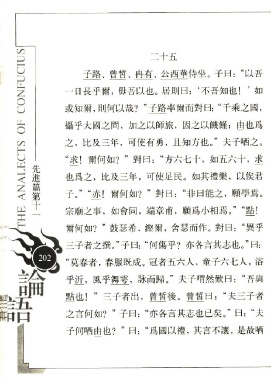 二十五
子路、曾皙、冉有、公西華侍坐。子曰：“以吾
一日長乎爾，毋吾以也。居則曰：‘不吾知也！’如
或知爾，則何以哉？”子路率爾而對曰：“千乘之國，
攝乎大國之間，加之以師旅，因之以饑饉；由也爲
之，比及三年，可使有勇，且知方也。”夫子哂之。
“求！爾何如？”對曰：“方六七十，如五六十，求
也爲之，比及三年，可使足民。如其禮樂，以俟君
子。”“赤！爾何如？”對曰：“非曰能之，願學焉。
宗廟之事，如會同，端章甫，願爲小相焉。”“點！
爾何如？”鼓瑟希，鏗爾，舍瑟而作。對曰：“異乎
三子者之撰。”子曰：“何傷乎？亦各言其志也。”曰：
“莫春者，春服既成。冠者五六人，童子六七人，浴
乎沂，風乎舞雩，詠而歸。”夫子喟然歎曰：“吾與
點也！”三子者出，曾皙後。曾皙曰：“夫三子者
之言何如？”子曰：“亦各言其志也已矣。”曰：“夫
子何哂由也？”曰：“爲國以禮，其言不讓，是故哂
THE ANALECTS OF CONFUCIUS
先進篇第十一
202
論語